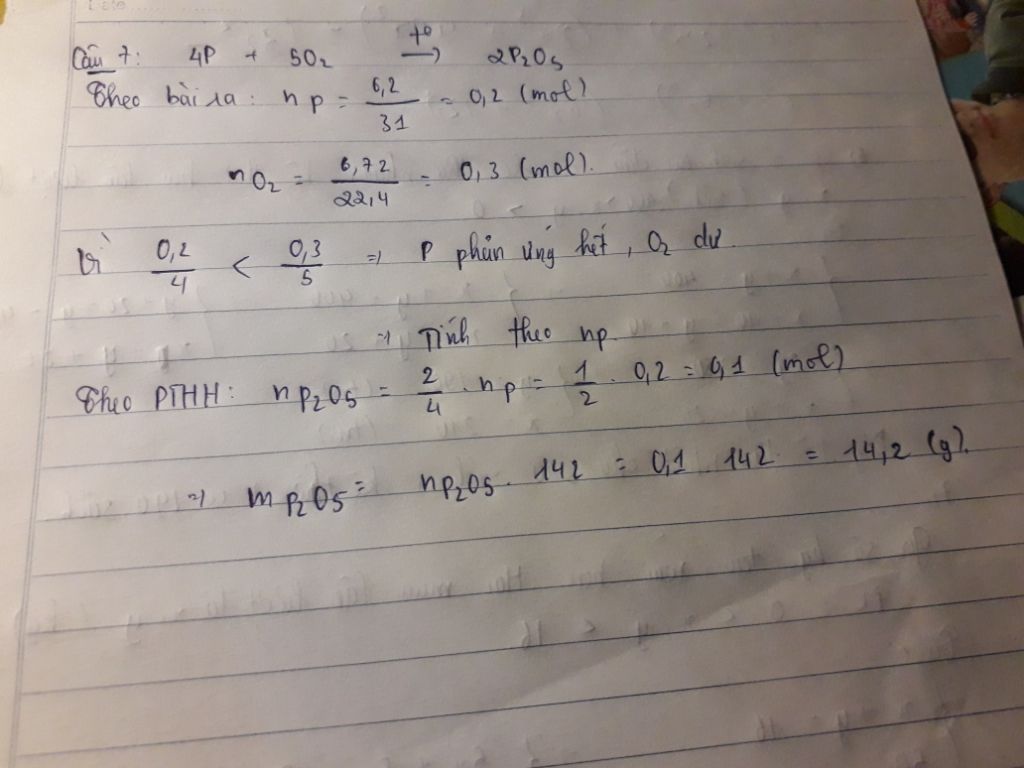 Câu 7: 4P + 5O₂ →^{t⁰} 2P₂O₅
Theo bài ra: nP = 6,2/31 = 0,2 (mol)
nO₂ = 6,72/22,4 = 0,3 (mol).
Vì 0,2/4 < 0,3/5 => P phản ứng hết, O₂ dư.
=> Tính theo nP.
Theo PTHH: nP₂O₅ = 2/4 . nP = 1/2 . 0,2 = 0,1 (mol)
=> mP₂O₅ = nP₂O₅ . 142 = 0,1 . 142 = 14,2 (g).